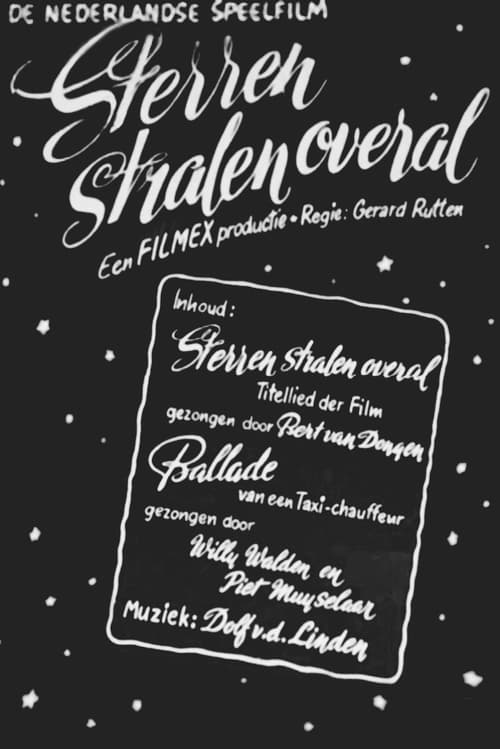 DE NEDERLANDSE SPEELFILM
Sterren
stralen overal
Een FILMEX productie • Regie: Gerard Rutten
Inhoud:
Sterren stralen overal
Titellied der Film
gezongen door Bert van Dongen
Ballade
van een Taxi-chauffeur
gezongen door
Willy Walden en
Piet Muyselaar
Muziek: Dolf v.d. Linden